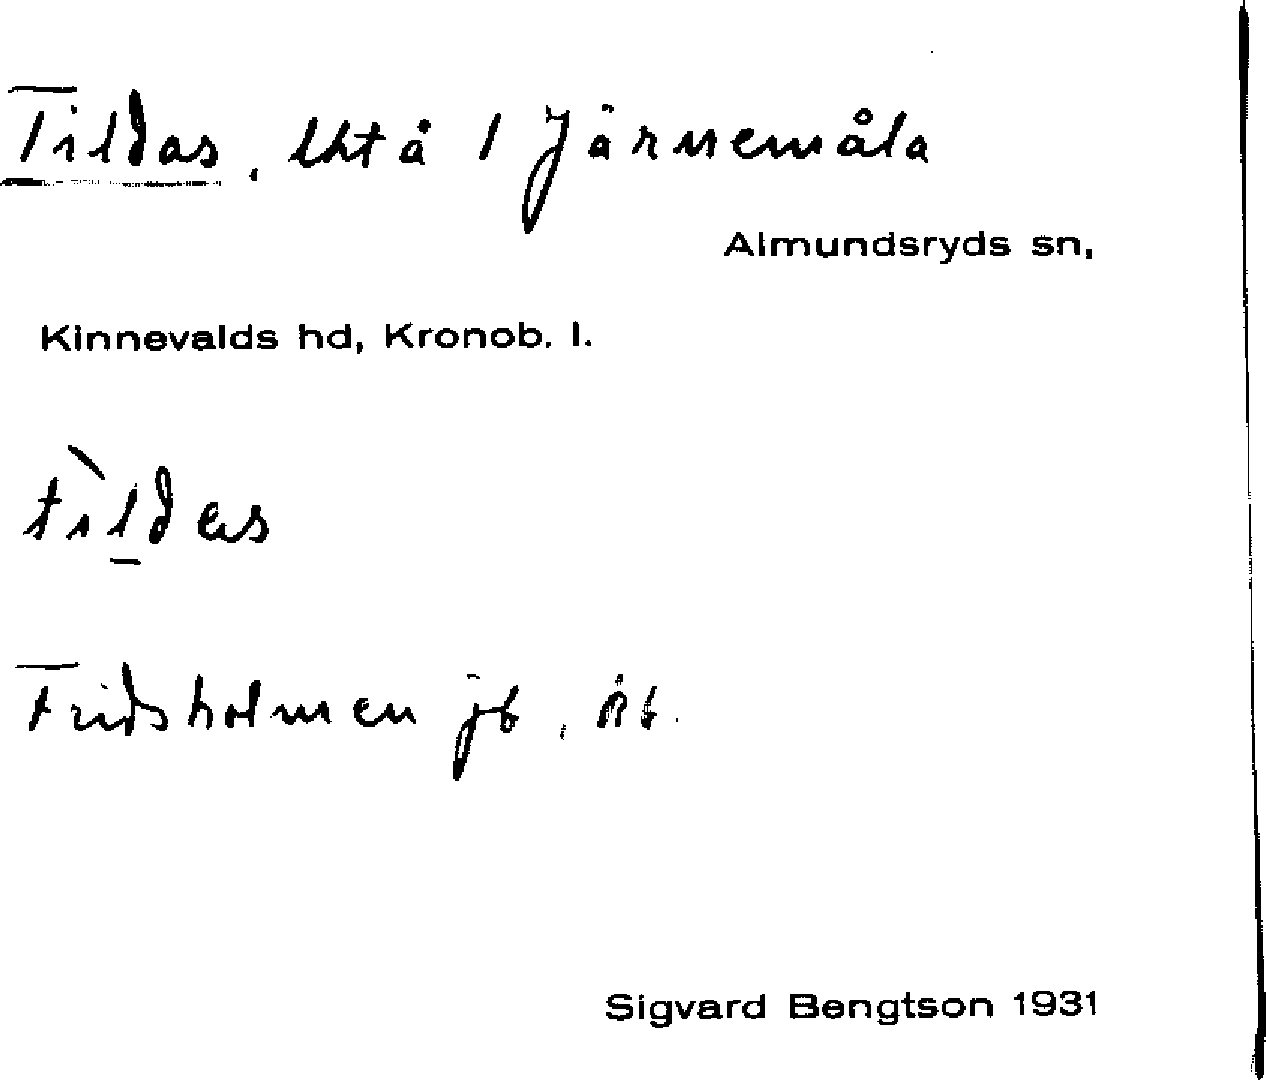 Tildas, lht å 1 Järnemåla
Almundsryds sn,
Kinnevalds hd, Kronob. l.
tìldas
Fridsholmen jb,
Sigvard Bengtson 1931